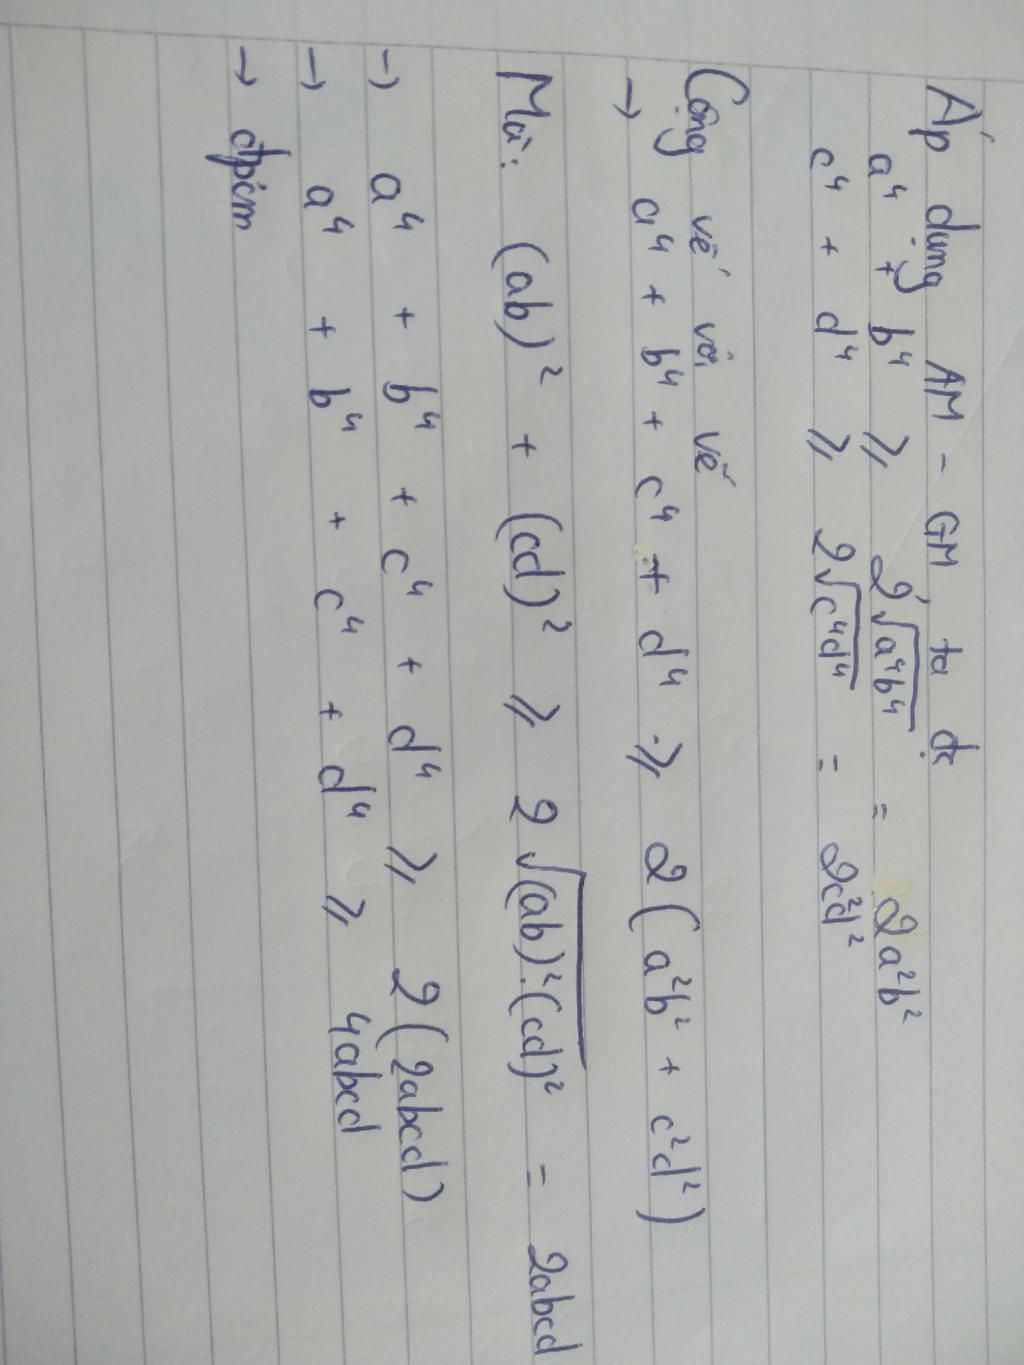 Áp dụng AM - GM, ta đc
a⁴ + b⁴ ⩾ 2√a⁴b⁴ = 2a²b²
c⁴ + d⁴ ⩾ 2√c⁴d⁴ = 2c²d²
Cộng vế với vế
→ a⁴ + b⁴ + c⁴ + d⁴ ⩾ 2(a²b² + c²d²)
Mà: (ab)² + (cd)² ⩾ 2√(ab)².(cd)² = 2abcd
→ a⁴ + b⁴ + c⁴ + d⁴ ⩾ 2(2abcd)
→ a⁴ + b⁴ + c⁴ + d⁴ ⩾ 4abcd
→ đpcm